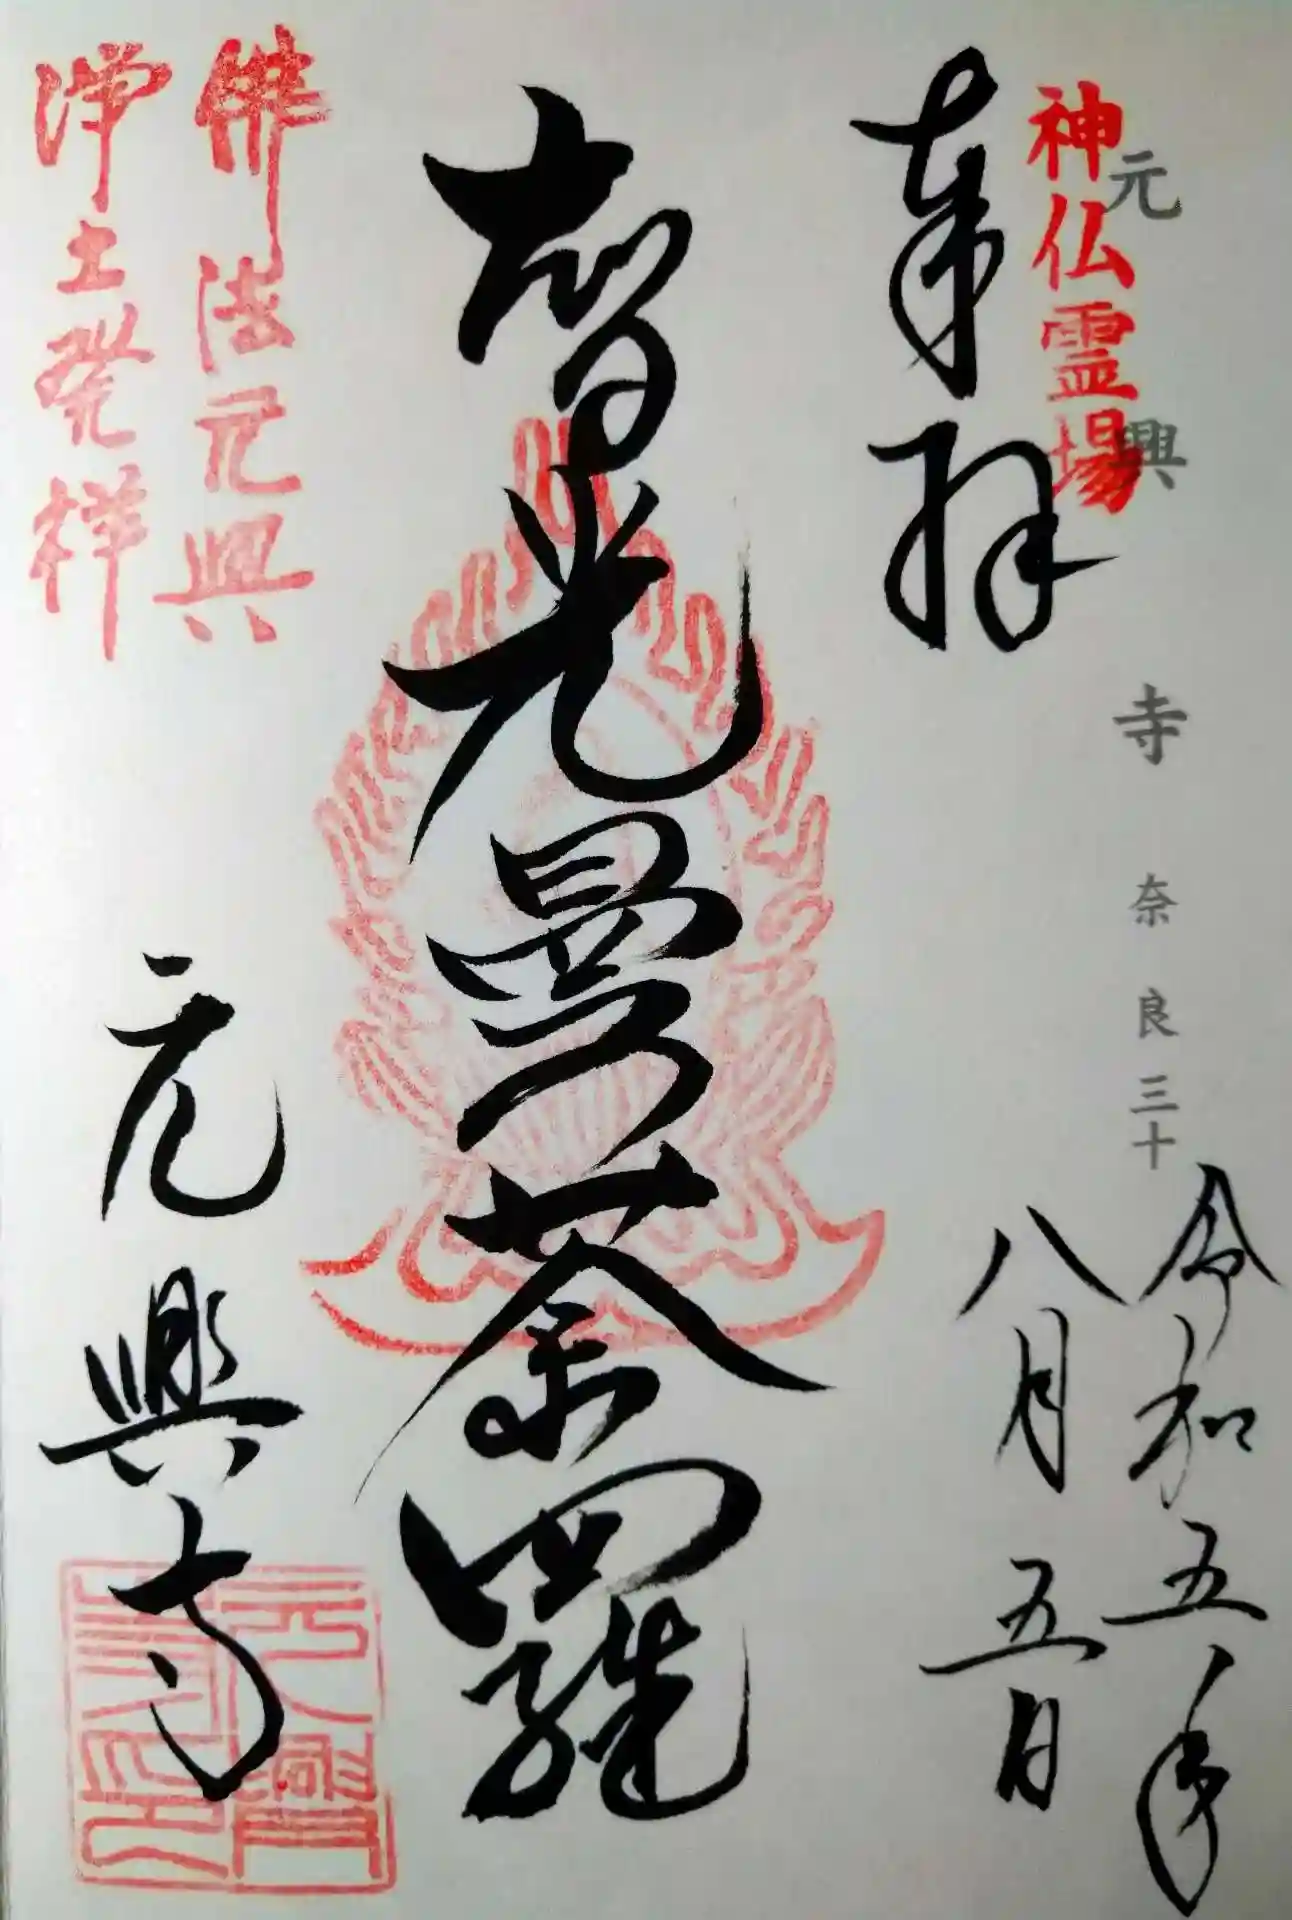 元興寺 奈良三十
神仏霊場
奉拝
令和五年
八月五日
智光曼荼羅
佛法元興
浄土発祥
元興寺
元興寺印